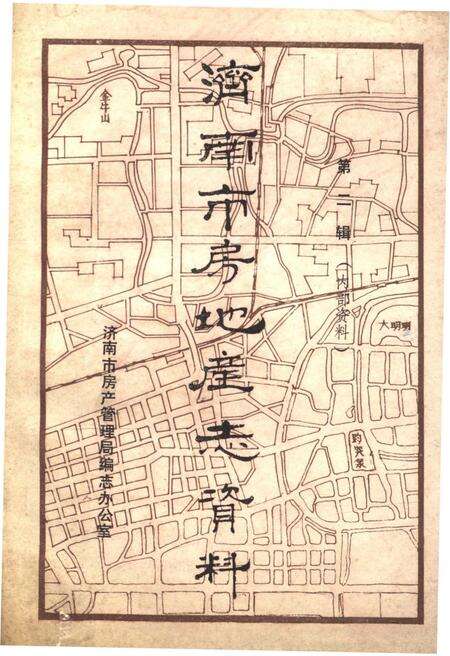 濟南市房地産志資料
第二辑
（内部资料）
济南市房产管理局编志办公室
金牛山
大明湖
趵突泉